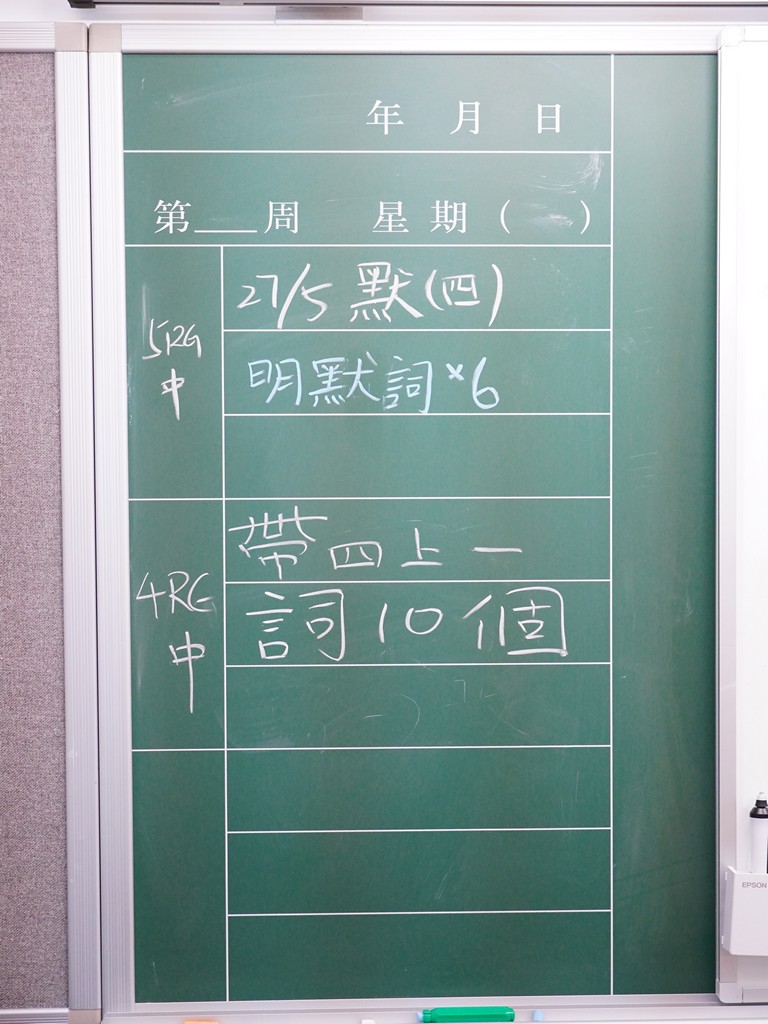 年 月 日
第___周 星期( )
5RG
中
27/5 默(四)
明默詞×6
4RG
中
帶四上一
詞10個
EPSON